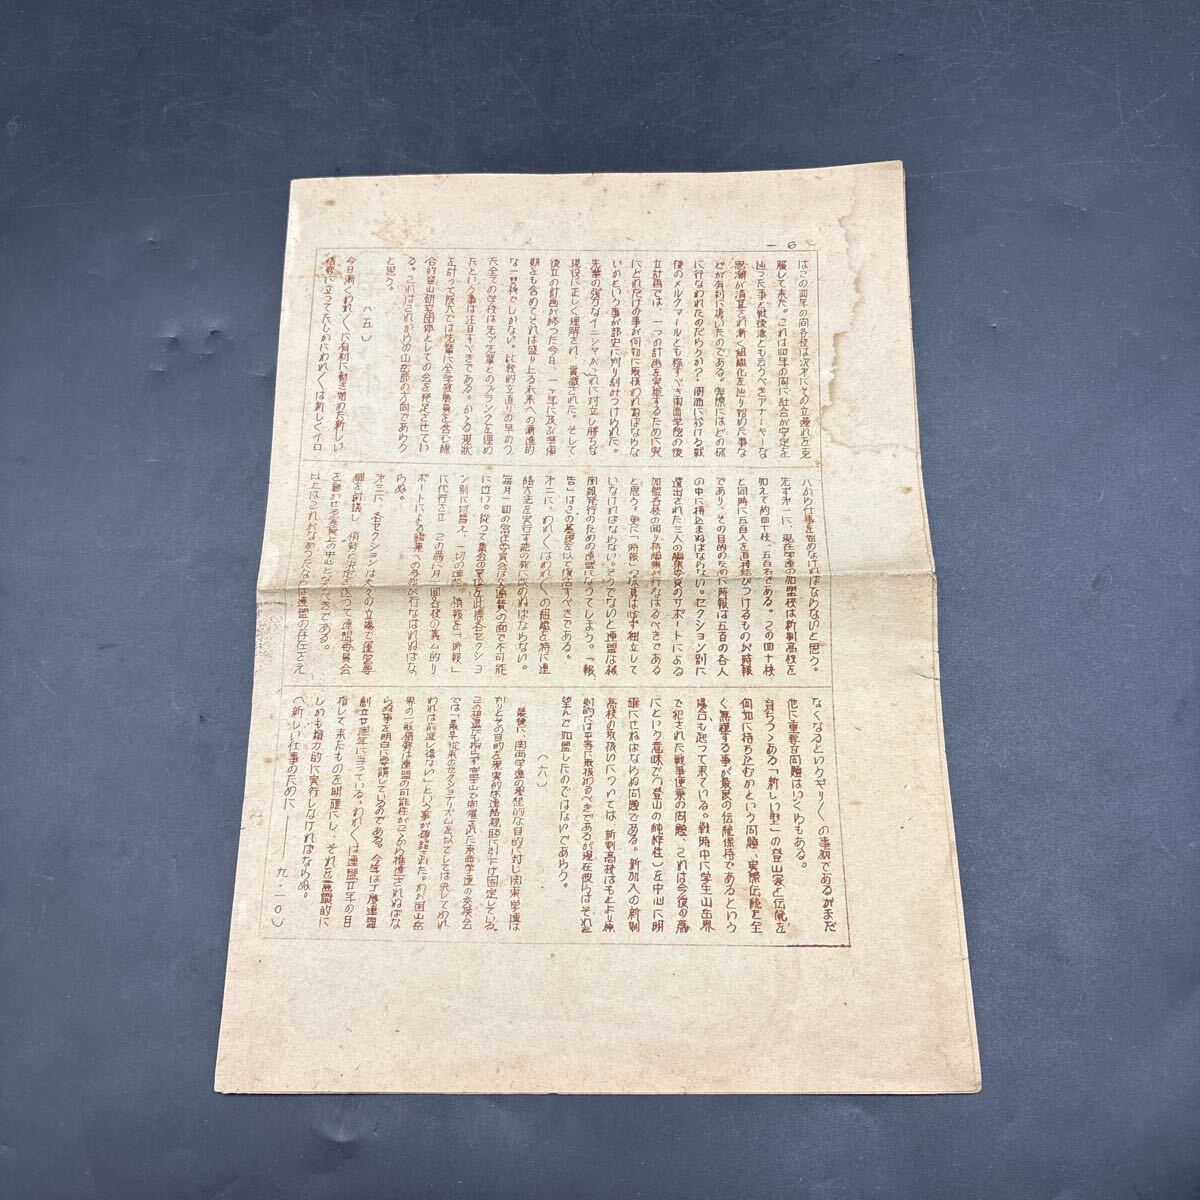 — 6
はこの四年の間各校は次オにその立遅れを克
服して来た。これは四年の間に社会が安定を
辿った事と戦後派とも云うべきアナーキーな
思潮が清算され漸く組織化を辿り始めた事な
どが有利に働いたのである。実際にはどの様
に行なわれたのだらうか？関西に於ける戦
後のメルクマールとも称すべき関西学院の後
立計画では、一つの計画を実施するために実
にどれだけの事が何如に取扱われねばならな
いかという事が部史に判り刻みつけられた。
先輩の強力なイニシャがこれに対立し勝ちな
現役に正しく理解され、貫徹された。そして
後立の計画が終った今日、一ヶ年に及ぶ準備
期をも含めてそれは盛り上る未来への漸進的
な一段階でしかない。比較的立直りの早かっ
た全ての学校は先づ先輩とのブランクを埋め
たという事は注目すべきである。かゝる現状
を計って阪大では先輩に全学教職員を含む綜
合的登山研究団体としての会を発足させてい
る。これはこれからの山岳部の方向であらう
と思う。
（五）
今日漸くわれ〳〵に有利に動き始めた新しい
情勢に立ってたしかにわれ〳〵は新しくイロ
ハから仕事を始めなければならないと思う。
先ずオ一に、現在学連の加盟校は新制高校を
加えて約四十校、五百名である。この四十校
と同時に五百人を直接結びつけるものが時報
であり、その目的のために時報は五百の各人
の中に持込まねばならない。セクション別に
選出された三人の編集委員のサポートによる
加盟各校の廻り持編集が行なはるべきである
と思う。更に「時報」の財政は必ず独立して
いなければならない。そうでないと連盟は機
関報発行のための連盟になってしまう。「報
告」はこの基礎を以て復活すべきである。
オ二に、われ〳〵はわれ〳〵の組織を特に連
絡方法を実行可能の線に改めねばならない。
毎月一回の常任委員会は交通費の面で不可能
に近い。従って集会の単位を此際各セクショ
ン別に切替え、一切の連絡、情報を「時報」
に代行させ、この為に月一回各校の義ム的リ
ポートによる編集への参加が行なはれねばな
らぬ。
オ三に、各セクションは夫々の立場で運営要
綱を討議し、情勢を決定を以って連盟委員会
を動かせる実質上の中心となるべきである。
以上はこれがなかったならば連盟の存在さえ
なくなるというギリ〳〵の事柄であるがまだ
他に重要な問題はいくらもある。
育ちつゝある「新しい型」の登山家と伝統を
何如に持ち込むかという問題、実際伝統を全
く無視する事が最良の伝統保持であるという
場合も起って来ている。戦時中に学生山岳界
で犯された戦争便乗の問題、これは今後の為
にという意味で（登山の純粋性）を中心に明
確にせねばならぬ問題である。新加入の新制
高校の取扱いについては、新制高校はもとより原
則的には平等に取扱わるべきであるが現在彼らはそれを
望んで加盟したのではないであらう。
（六）
最後に、関西学連の理想的な目的に対し関東学連は
かりとその目的を現実的な連絡親睦に引下げ固定している。
この相違にも拘らず富士山で開催された東西学連の交換会
では「最早従来のセクショナリズムを以てしては決してわれ
われは前進し得ない」という事が確認された。わが国山岳
界の一般情勢は連盟の可能性がつから推進されねばな
らぬ事を明白に要請しているのである。今年は丁度連盟
創立廿週年に当っている。われ〳〵は連盟廿年の日
指して来たものを明確にし、それを意識的に
しかも精力的に実行しなければならぬ。
（新しい仕事のために——九・二〇）